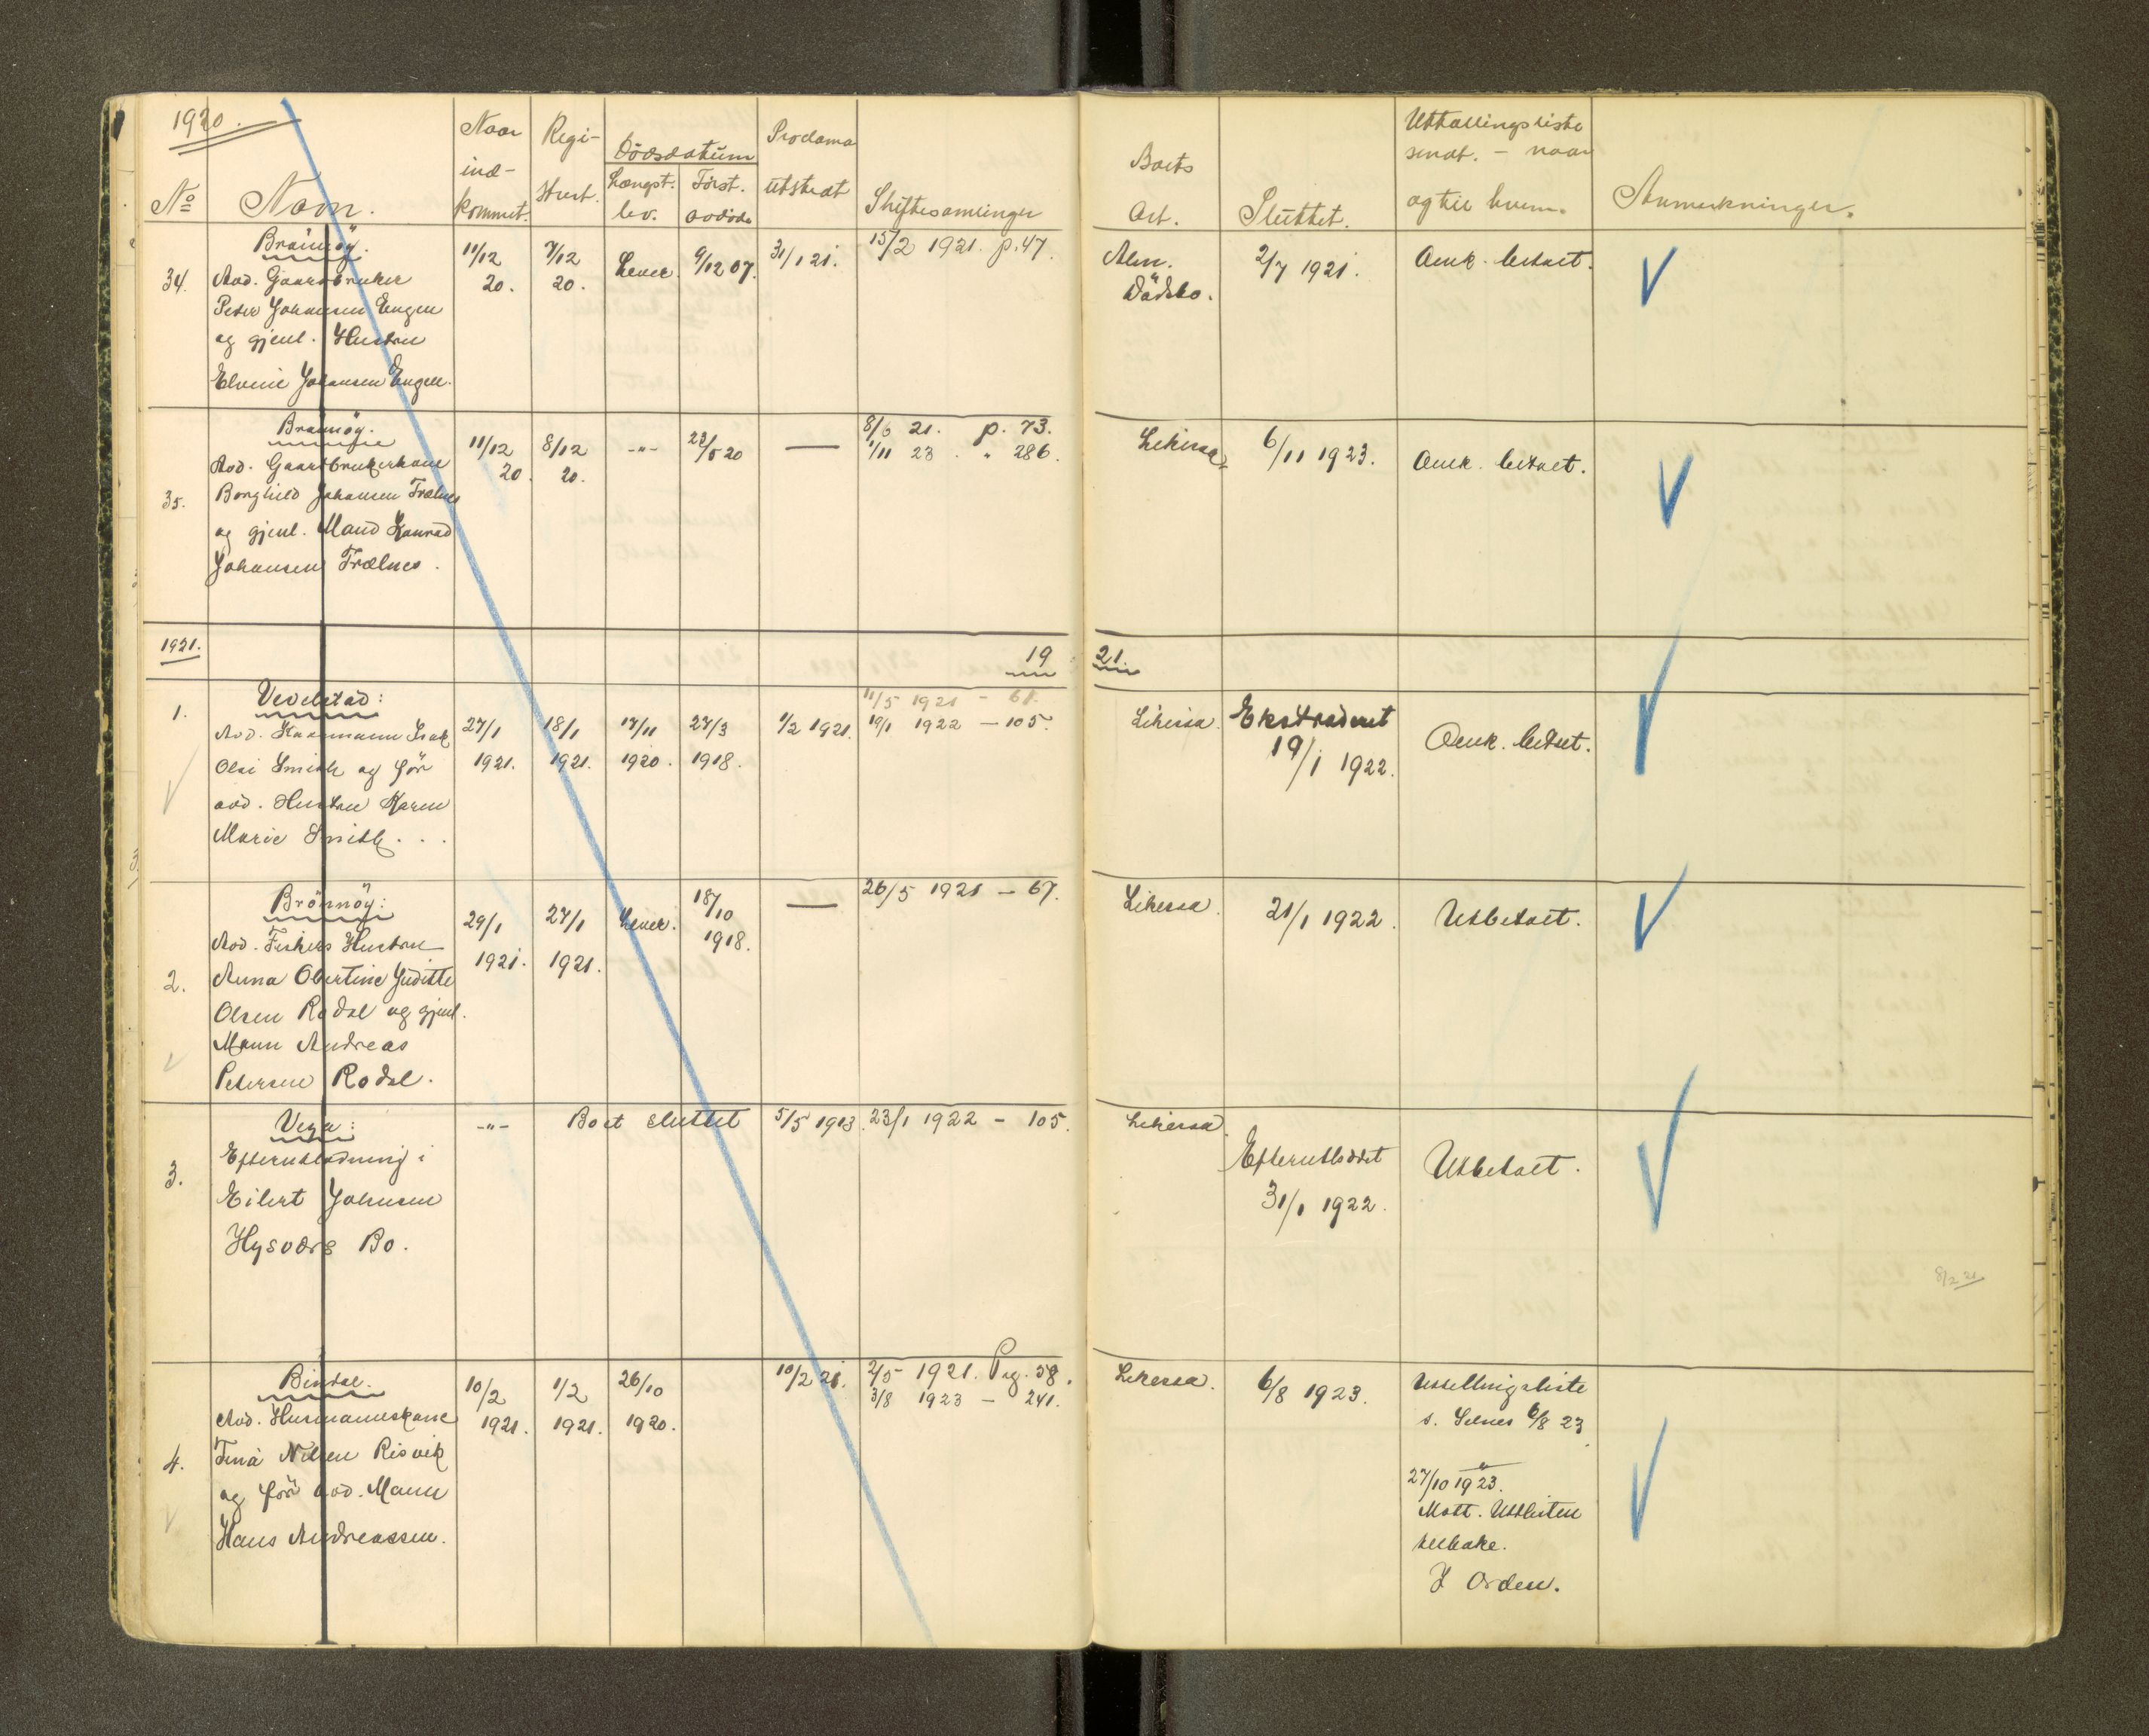 1920.
No
Navn.
Naar
ind-
kommet.
Regi-
strert.
Dödsdatum
Længst.
lev.
Först.
avdöde
Proclama
utstedt
Skiftesamlinger
Boets
Art.
Sluttet.
Utlællingsliste
sendt. - naar
og til hvem.
Anmerkninger.
34.
Brönnöy.
Avd. Gaardbruker
Peter Johansen Engen
og gjenl. Hustru
Elvine Johansen Engen.
11/12
20.
7/12
20.
Lever.
9/12 07.
31/1 21.
15/2 1921. p. 47.
Alm.
Dödsbo.
2/7 1921.
Omk. betalt.
35.
Brönnöy.
Avd. Gaardbrukerkone
Borghild Johansen Trælnes
og gjenl. Mand Konrad
Johansen Trælnes.
11/12
20.
8/12
20.
-"-
23/5 20
—
8/6 21. p. 73.
1/11 23. " 286.
Likersa
6/11 1923.
Omk. betalt.
1921.
19
21.
1.
Vevelstad:
Avd. Kaarmann Isak
Olai Smith og för
avd. Hustru Karen
Marie Smith...
27/1
1921.
18/1
1921.
17/11
1920.
27/3
1918.
1/2 1921.
11/5 1921 - 61.
19/1 1922 - 105.
Likersa.
Ekstraderet
19/1 1922.
Omk. betalt.
2.
Brönnöy:
Avd. Fiskers Hustru
Anna Obertine Juditte
Olsen Rodal og gjenl.
Mann Andreas
Petersen Rodal.
29/1
1921.
27/1
1921.
Lever.
18/10
1918.
—
26/5 1921 - 67.
Likersa.
21/1 1922.
Utbetalt.
3.
Vega:
Efterutlodning i
Eilert Johnsen
Hysværs Bo.
-"-
Boet sluttet
5/5 1913.
23/1 1922 - 105.
Likersa.
Efterutloddet
31/1 1922.
Utbetalt.
8/2 21
4.
Bindal.
Avd. Husmannskone
Tina Nilsen Risvik
og för avd. Mann
Hans Andreassen.
10/2
1921.
1/2
1921.
26/10
1920.
10/2 21.
2/5 1921. Pag. 58.
3/8 1923 - 241.
Likersa.
6/8 1923.
Utdellingsliste
s. Selnes 6/8 23
27/10 1923.
Mott. Uttlisten
tilbake.
I Orden.